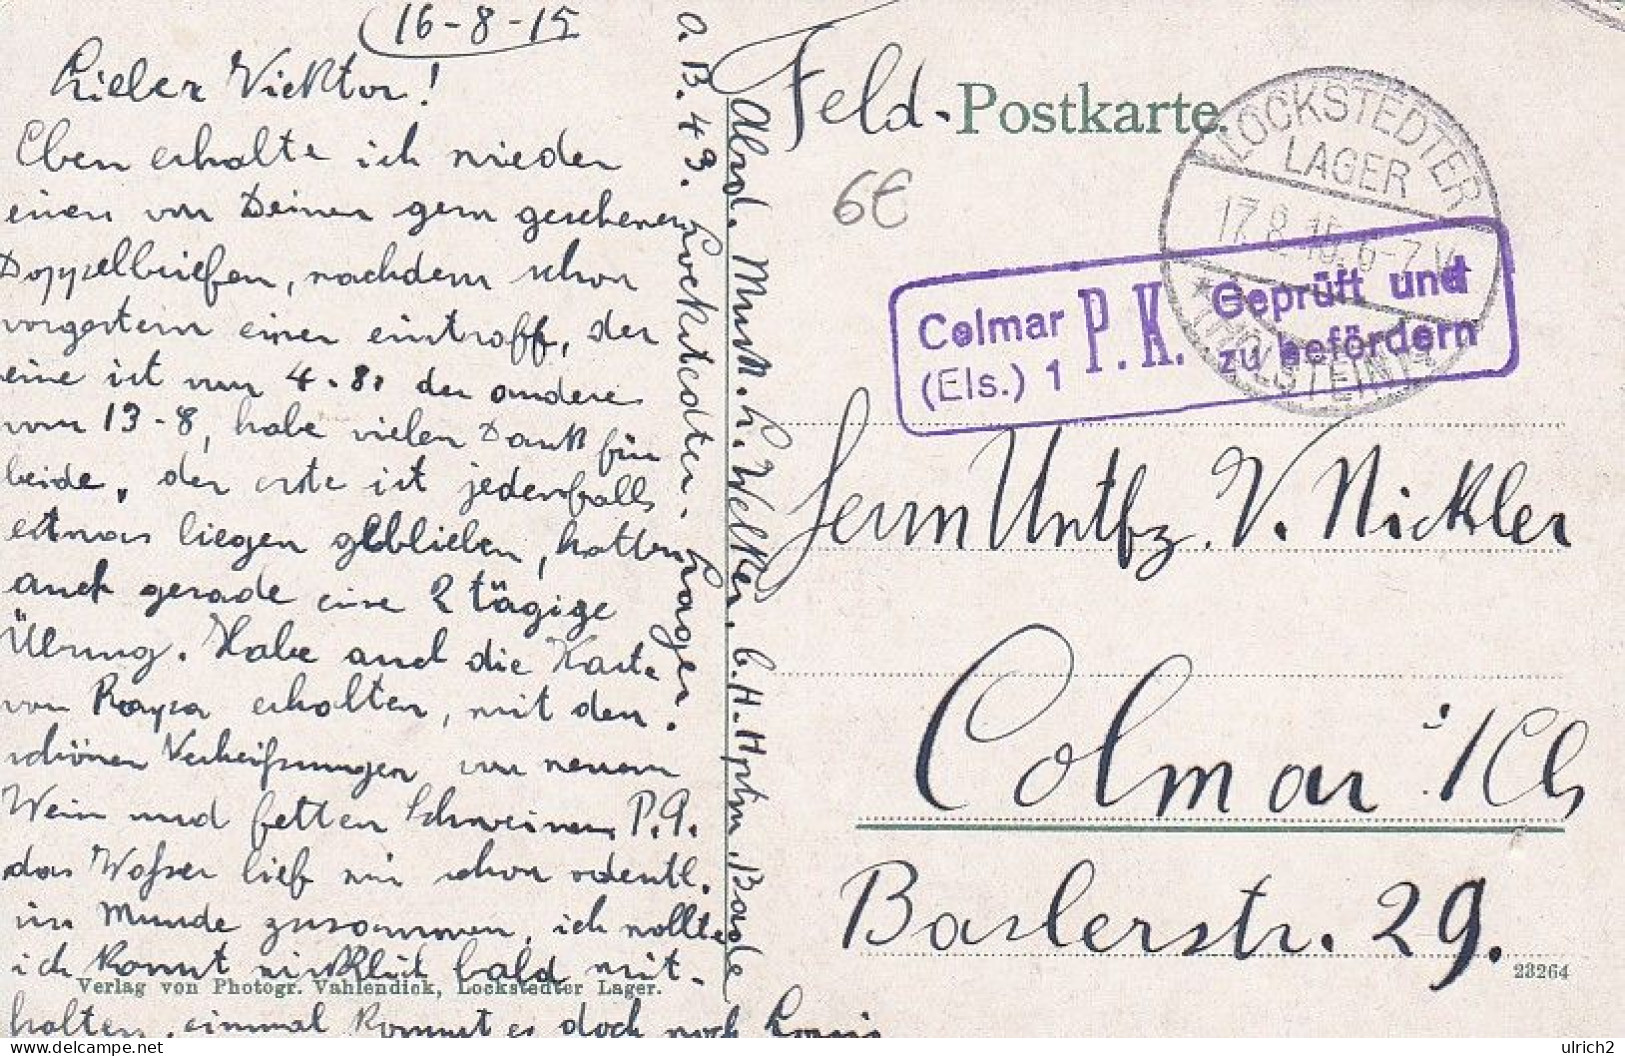 16-8-15
Lieber Vicktor!
Eben erhalte ich wieder
einen von Deinen gern gesehenen
Doppelbriefen, nachdem schon
vorgestern einer eintraff, der
eine ist vom 4.8. der andere
vom 13-8, habe vielen Dank für
beide, der erste ist jedenfalls
etwas liegen geblieben, hatten
auch gerade eine 2 tägige
Übung. Habe auch die Karte
von erhalten, mit den
schönen Verheißungen von neuem
Wein und fetten Schweinen P.G.
das Wasser lief mir schon ordentl.
im Munde zusammen, ich wollte
ich könnt wirklich bald mit-
halten, einmal kommt es doch noch Louis
Verlag von Photogr. Vahlendick, Lockstedter Lager.
Absd. Musk. L. Welker, b. H. Hptm. Bande
O. B. 49. Lockstedter-Lager.
Feld-Postkarte.
6€
LOCKSTEDTER
LAGER
17.8.15. 6-7 V.
* (HOLSTEIN) *
Colmar P.K. Geprüft und
(Els.) 1 zu befördern
Herrn Untfz. V. Nickler
Colmar i/Els
Baslerstr. 29.
23264
delcampe.net
ulrich2